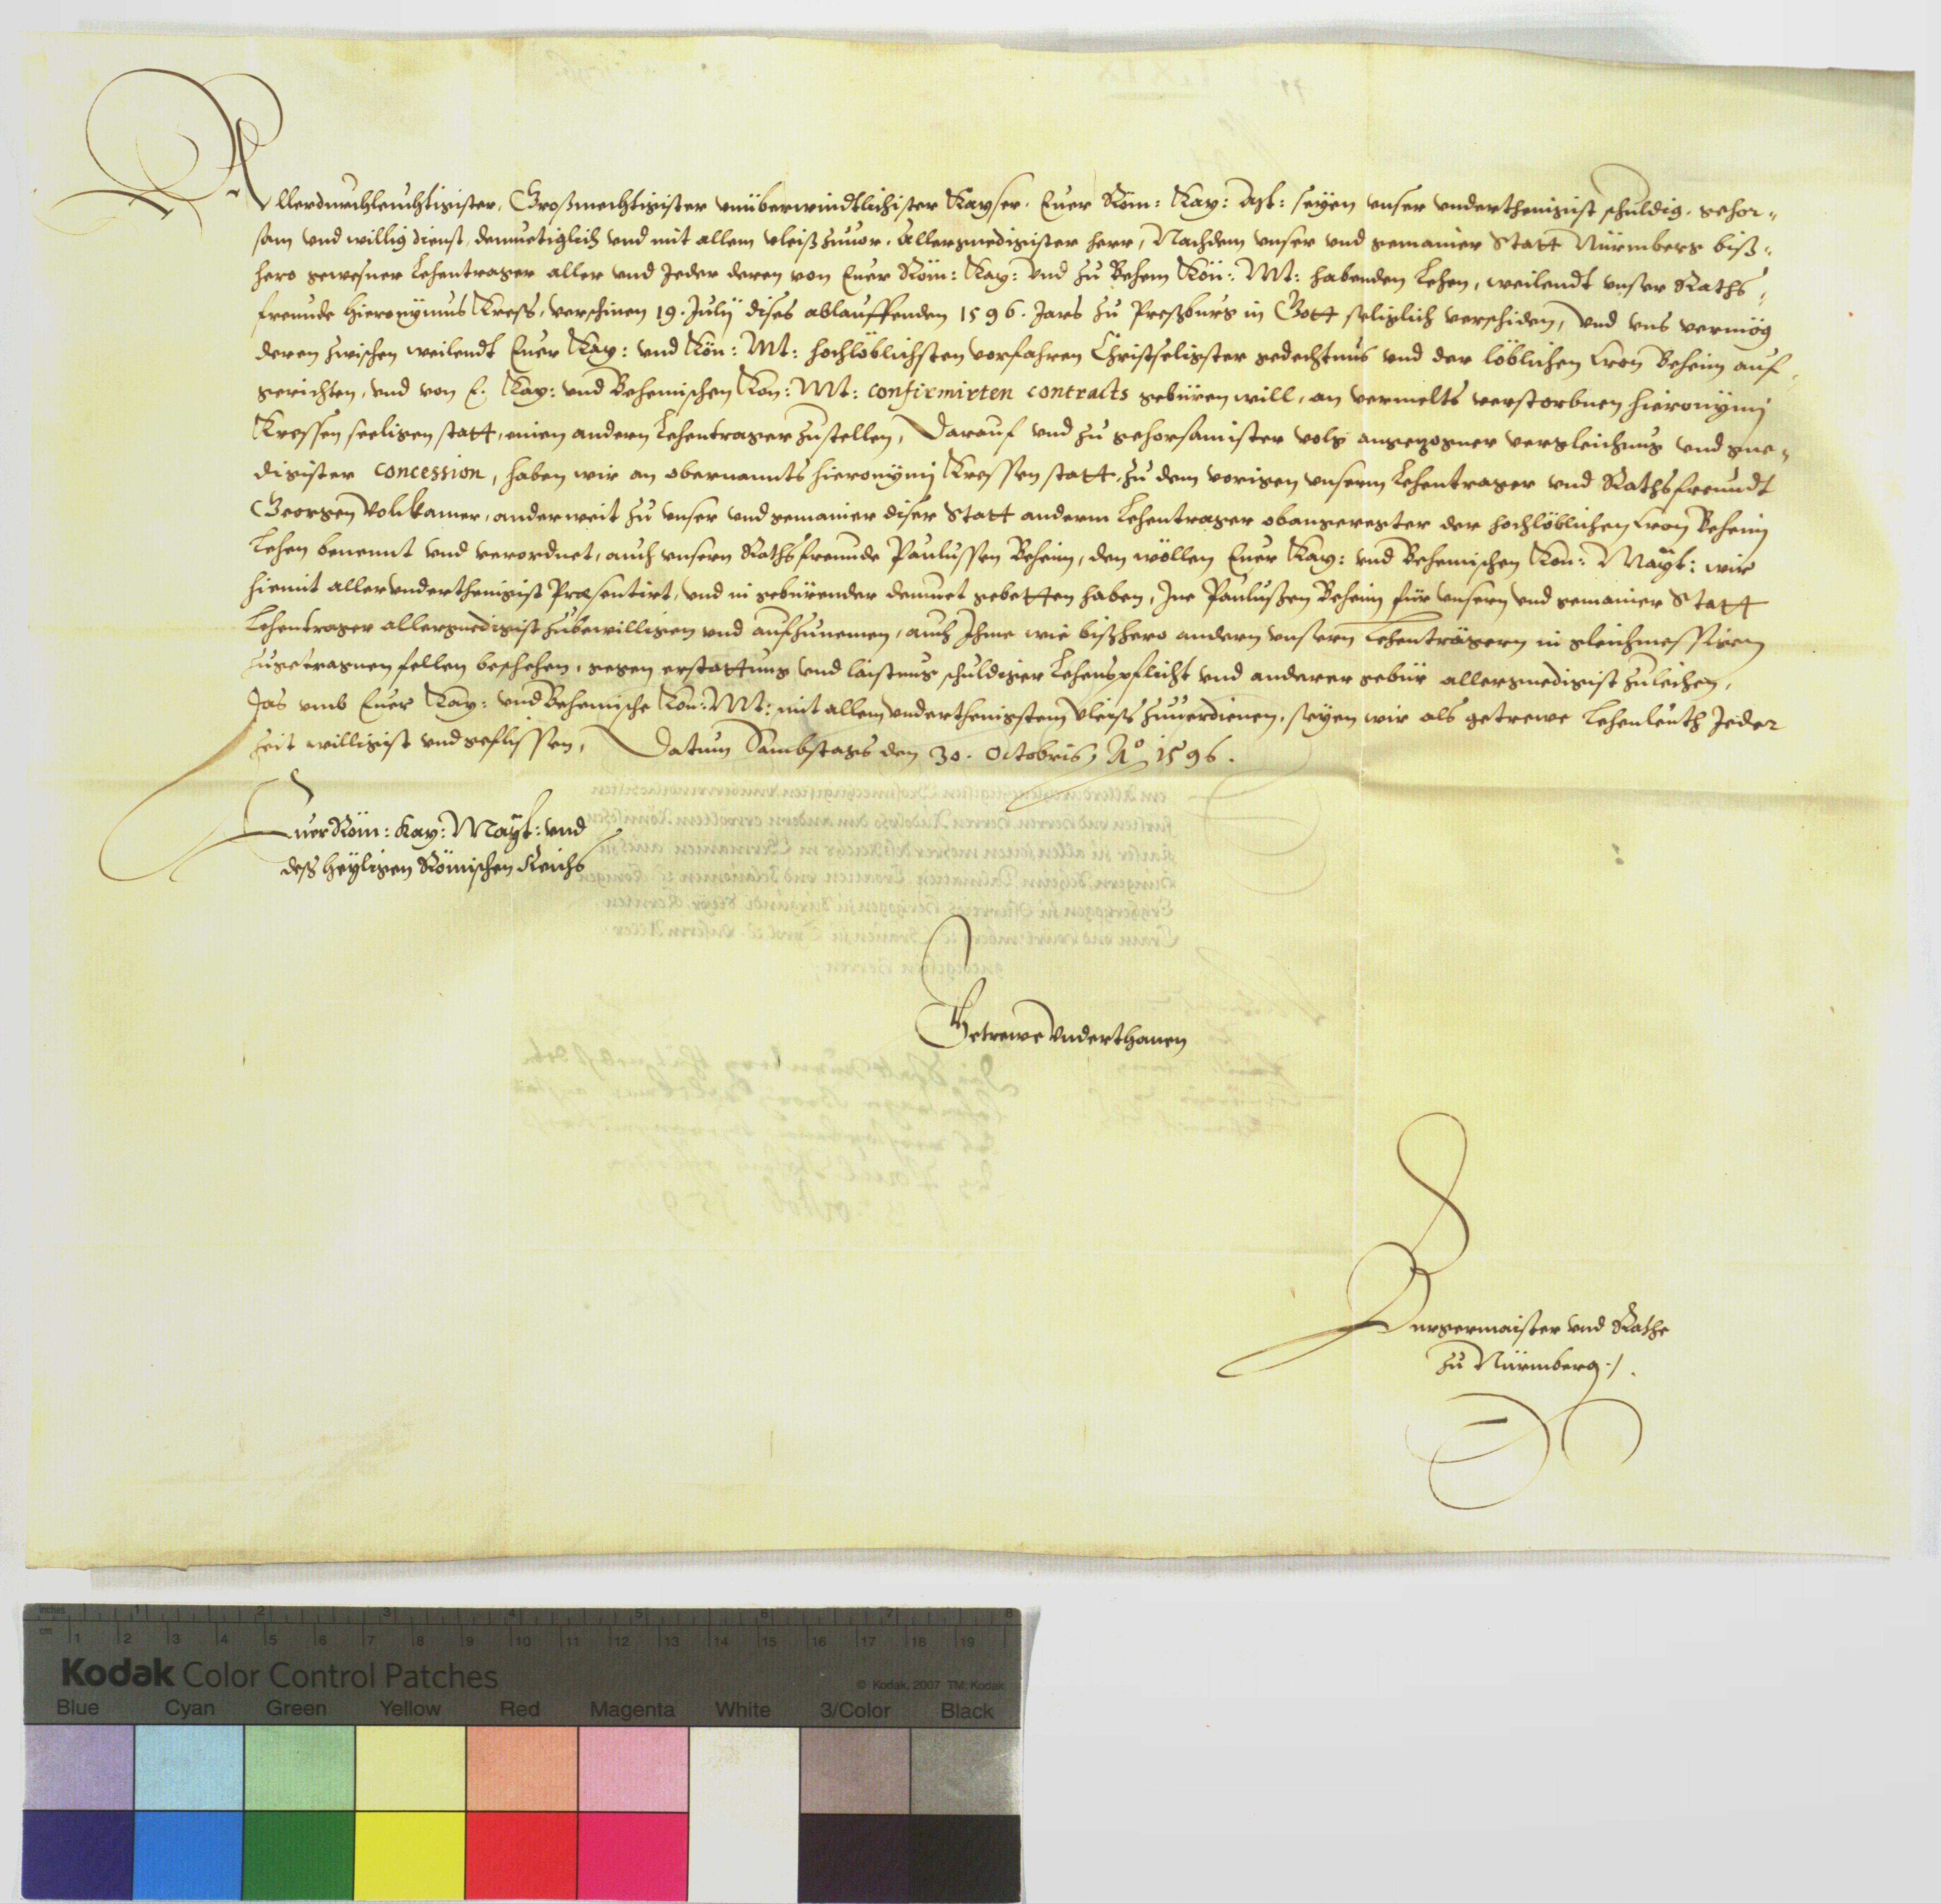 Allerdurchleuchtigister, Großmechtigister vnüberwindtlichister Kayser. Euer Röm: Kay: Mt: seyen vnser vnderthenigist schuldig. gehor-
sam vnd willig dienst, demuetiglich vnd mit allem vleiß zuuor. Allergnedigister herr, Nachdem vnser vnd gemainer Statt Nürmberg biß-
hero gewesner Lehentrager aller vnd Jeder deren von Euer Röm: Kay: vnd zu Behem Kön: Mt: habenden Lehen, weilendt vnser Raths-
freunde Hieronymus Kress, verschinen 19. Julij dises ablauffenden 1596. Jars zu Preßburg in Gott seliglich verschiden, vnd vns vermög
deren zwischen weilendt Euer Kay: vnd Kön: Mt: hochlöblichsten vorfahren Christseligster gedechtnus vnd der löblichen Cron Beheim auf-
gerichten, vnd von E. Kay: vnd Behemischen Kön: Mt: confirmirten contracts gebüren will, an vermelts verstorbnen Hieronymj
Kressen seeligen statt, einen andern Lehentrager zustellen, Darauf vnd zu gehorsamister volg angezogner vergleichnus vnd gne-
digister concession, haben wir an obernannts Hieronymj Kressen statt, zu dem vorigen vnserm Lehentrager vnd Rathsfreundt
Georgen Volkamer, anderweit zu vnser vnd gemainer diser Statt anderm Lehentrager obangeregter der hochlöblichen Cron Beheim
Lehen benennt vnd verordnet, auch vnsern Rathsfreunde Paulussen Beheim, den wöllen Euer Kay: vnd Behemischen Kön: Mayt: wir
hiemit allervnderthenigist Præsentirt, vnd in gebürender demuet gebetten haben, Ine Paulußen Beheim für vnsern vnd gemainer Statt
Lehentrager allergnedigist zubewilligen vnd aufzunemen, auch Ihme wie bißhero andern vnsern Lehenträgern in gleichmessigen
zugetragnen fellen beschehen, gegen erstattung vnd laistung schuldiger Lehenspflicht vnd anderer gebür allergnedigist zuleihen,
Das vmb Euer Kay: vnd Behemische Kön: Mt: mit allem vnderthenigstem vleiss zuuerdienen, seyen wir als getrewe Lehenleuth Jeder
zeit willigist vnd geflissen, Datum Sambstags den 30. Octobris, Ao 1596.
Euer Röm: Kay: Mayt: vnd
deß heyligen Römischen Reichs
Getrewe Vnderthanen
Burgermaister vnd Rathe
zu Nürmberg ./.
inches 1 2 3 4 5 6 7 8
cm 1 2 3 4 5 6 7 8 9 10 11 12 13 14 15 16 17 18 19
Kodak Color Control Patches
© Kodak, 2007 TM: Kodak
Blue Cyan Green Yellow Red Magenta White 3/Color Black